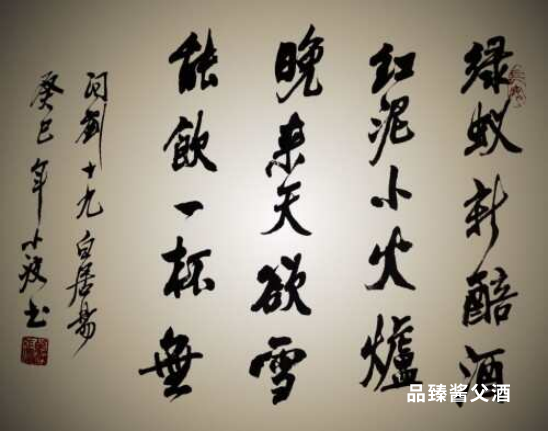 绿蚁新醅酒
红泥小火爐
晚来天欲雪
能飲一杯無
问劉十九白居易
癸巳年小波书
品臻酱父酒